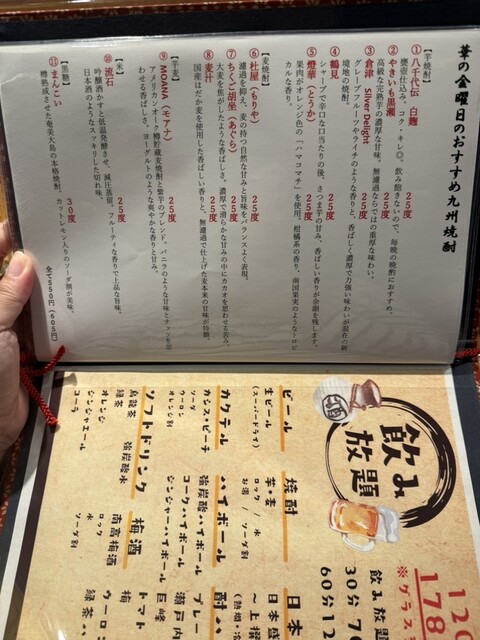 華の金曜日のおすすめ九州焼酎
【芋焼酎】
①八千代伝 白麹 25度
甕壺仕込み。コク・キレ◎。飲み飽きないので、毎晩の晩酌におすすめ。
②やきいも黒瀬 25度
高級な完熟芋の濃厚な甘味。無濾過ならではの重厚な味わい。
③倉津 Silver Delight 25度
グレープフルーツやライチのような香りと、香ばしく濃厚で力強い味わいが混在の新
境地の焼酎。
④鶴見 25度
シャープで辛口な口当たりの後、さつま芋の甘み、香ばしい香りが余韻を残します。
⑤燈華（とうか） 25度
果肉がオレンジ色の「ハマコマチ」を使用。柑橘系の香り、南国果実のようなトロピ
カルな香り。
【麦焼酎】
⑥杜屋（もりや） 25度
濾過を抑え、麦の持つ自然な甘みと旨味をバランスよく表現。
⑦ちくご胡座（あぐら） 25度
大麦を焦がしたような香ばしさ。濃厚で滑らかな甘みの中にカカオを思わせる苦み。
⑧麦汁 25度
国産はだか麦を使用した香ばしい香りと、無濾過で仕上げた麦本来の甘味が特徴。
【芋麦】
⑨MOANA（モアナ） 25度
アメリカンオーク樽貯蔵麦焼酎と紫芋のブレンド。バニラのような甘味とナッツを思
わせる香ばしさ、ヨーグルトのような爽やかな香りと甘み。
【米】
⑩流石 25度
吟醸酒かすと低温発酵させ、減圧蒸留。フルーティな香りで上品な旨味。
日本酒のようなスッキリした切れ味。
【黒糖】
⑪まんこい 30度
樽熟成させた奄美大島の本格焼酎。カットレモン入りのソーダ割が美味。
全て550円（605円）
飲み
放題
ビール
生ビール
（スーパードライ）
焼酎
芋・麦
ロック / 水
お湯 / ソーダ割
カクテル
カシス・ピーチ
ソーダ
ウーロン
オレンジ割
ハイボール
強炭酸ハイボール
コークハイボール
ジンジャーハイボール
ソフトドリンク
烏龍茶
緑茶
強炭酸水
オレンジ
ジンジャエール
コーラ
梅酒
南高梅酒
ロック
水
ソーダ割
日本
日本盛
～上撰
瀬戸内
巨峰
トマト
梅
ウーロン
緑茶ハ
飲み放題
30分7
60分12
120
178
※グラス